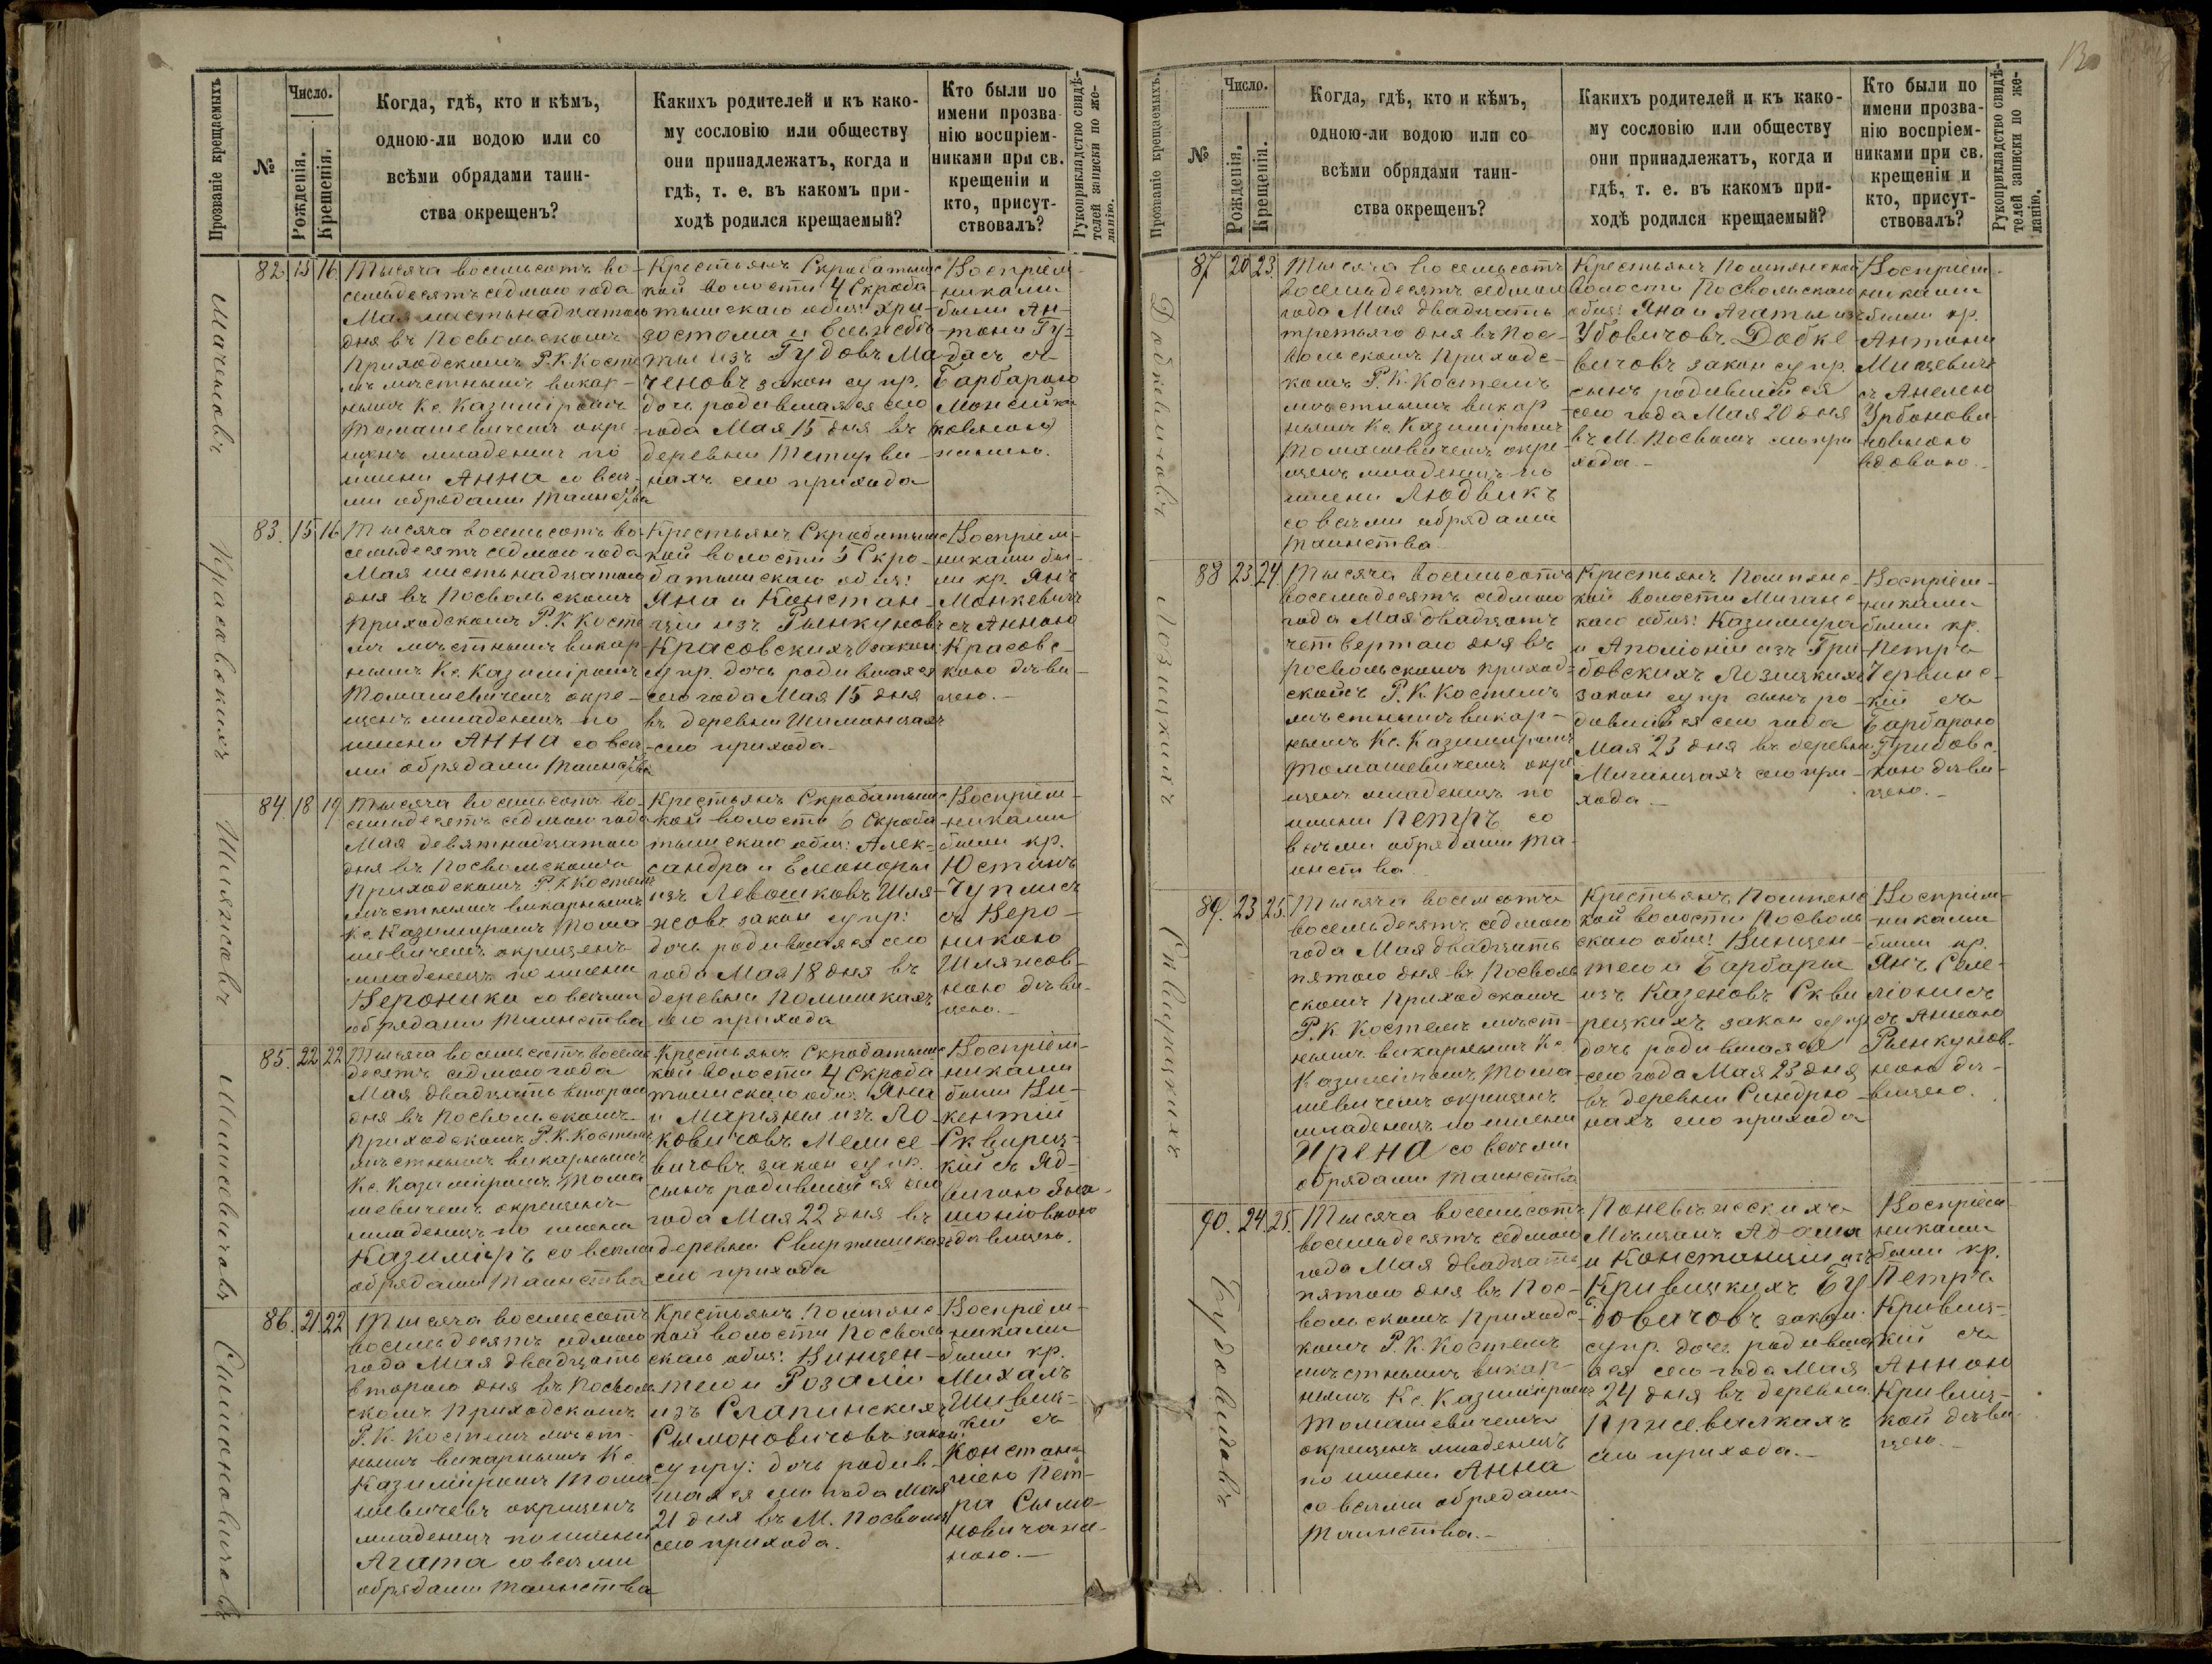 130
Прозваніе крещаемыхъ
№
Число.
Рожденія.
Крещенія.
Когда, гдѣ, кто и кѣмъ,
одною-ли водою или со
всѣми обрядами таин-
ства окрещенъ?
Какихъ родителей и къ како-
му сословію или обществу
они принадлежатъ, когда и
гдѣ, т. е. въ какомъ при-
ходѣ родился крещаемый?
Кто были по
имени прозва-
нію воспріем-
никами при св.
крещеніи и
кто, присут-
ствовалъ?
Рукоприкладство свидѣ-
телей записки по же-
ланію.
82. 15 16
Тысяча восемьсотъ во-
семьдесятъ седмого года
Мая шестьнадцатого
дня въ Посвольскомъ
Приходскомъ Р. К. Косте
лѣ мѣстнымъ викар-
нымъ Кс. Казиміромъ
Томашевичемъ окре-
щенъ младенецъ по
имени Анна со всѣ-
ми обрядами таинства
Крестьянъ Скробатыш
кой волости 4 Скроба
тышскаго общ: Хри-
зостома и Ельжбѣ-
ты изъ Гудовъ Ма
ченовъ закон супр.
дочь родившаяся сего
года Мая 15 дня въ
деревни Тетерви-
нахъ сего прихода
Воспріем-
никами
были Ан-
тони Гу-
дасъ съ
Барбарою
83. 15 16
Тысяча восемьсотъ во-
семьдесятъ седмого года
Мая шестьнадцатого
дня въ Посвольскомъ
Приходскомъ Р. К. Косте
лѣ мѣстнымъ викар
нымъ Кс. Казиміромъ
Томашевичемъ окре-
щенъ младенецъ по
имени Анна со всѣ-
ми обрядами таинства
Крестьянъ Скробатыш
кой волости 5 Скро-
батышскаго общ:
Яна и Констан-
ціи изъ Рынкуновъ
Красовскихъ закон
супр. дочь родившаяся
сего года Мая 15 дня
въ деревни Шиманцахъ
сего прихода
Воспріем-
никами бы-
ли кр. Янъ
Монкевичъ
съ Анною
Красовс-
кою дѣви-
цею.
84. 18 19
Тысяча восемьсотъ во-
семьдесятъ седмого года
Мая девятнадцатого
дня въ Посвольскомъ
Приходскомъ Р. К. Костелѣ
мѣстнымъ викарнымъ
Кс. Казиміромъ Тома
шевичемъ окрещенъ
младенецъ по имени
Вероника со всѣми
обрядами таинства
Крестьянъ Скробатыш
кой волости 6 Скроба
тышскаго общ: Алек-
сандра и Элеоноры
изъ Левошковъ Шля-
жовъ закон супр:
дочь родившаяся сего
года Мая 18 дня въ
деревни
сего прихода
Воспріем-
никами
были кр.
Юстинъ
Чуплисъ
съ Веро-
никою
Шляжов-
ною дѣви-
цею.
85. 22 22
Тысяча восемьсотъ восемь
десятъ седмого года
Мая двадцать второго
дня въ Посвольскомъ
Приходскомъ Р. К. Костелѣ
мѣстнымъ викарнымъ
Кс. Казиміромъ Тома
шевичемъ окрещенъ
младенецъ по имени
Казиміръ со всѣми
обрядами таинства
Крестьянъ Скробатыш
кой волости 4 Скроба
тышскаго общ: Яна
и Марьяны изъ Ло-
ковичовъ Мелисе-
вичовъ закон супр.
сынъ родившійся сего
года Мая 22 дня въ
деревни
сего прихода
Воспріем-
никами
были Ви-
кентій
Сквириц-
кій съ Яд-
вигою
дѣвицею.
86. 21 22
Тысяча восемьсотъ
восемьдесятъ седмого
года Мая двадцать
второго дня въ Посволь
скомъ Приходскомъ
Р. К. Костелѣ мѣст-
нымъ викарнымъ Кс.
Казиміромъ Тома
шевичевъ окрещенъ
младенецъ по имени
Агата со всѣми
обрядами таинства
Крестьянъ Помпянс
кой волости Посволь
скаго общ: Винцен-
тего и Розаліи
изъ Слапинскихъ
Сымоновичовъ закон:
супру: дочь родив-
шаяся сего года Мая
21 дня въ М. Посволѣ
сего прихода.
Воспріем-
никами
были кр.
Михалъ
Шивиц-
кій съ
Констан-
ціею Пет-
ра Сымо-
новича
Маченовъ
Красовскихъ
Шляжовъ
Мелисевичовъ
Сымоновичовъ
Прозваніе крещаемыхъ.
№
Число.
Рожденія.
Крещенія.
Когда, гдѣ, кто и кѣмъ,
одною-ли водою или со
всѣми обрядами таин-
ства окрещенъ?
Какихъ родителей и къ како-
му сословію или обществу
они принадлежатъ, когда и
гдѣ, т. е. въ какомъ при-
ходѣ родился крещаемый?
Кто были по
имени прозва-
нію воспріем-
никами при св.
крещеніи и
кто, присут-
ствовалъ?
Рукоприкладство свидѣ-
телей записки по же-
ланію.
87 20 23
Тысяча восемьсотъ
восемьдесятъ седмого
года Мая двадцать
третьяго дня въ Пос-
вольскомъ Приходс-
комъ Р. К. Костелѣ
мѣстнымъ викар
нымъ Кс. Казиміромъ
Томашевичемъ окре-
щенъ младенецъ по
имени Людвикъ
со всѣми обрядами
таинства
Крестьянъ Помпянской
волости Посвольскаго
общ: Яна и Агаты изъ
Убовичовъ Добке
вичовъ закон супр.
сынъ родившійся
сего года Мая 20 дня
въ М. Посволѣ сего при
хода.
Воспріем-
никами
были кр.
Антони
съ Анелею
вдовою.
88 23 24
Тысяча восемьсотъ
восемьдесятъ седмого
года Мая двадцать
четвертаго дня въ
Посвольскомъ приход-
скомъ Р. К. Костелѣ
мѣстнымъ викар-
нымъ Кс. Казиміромъ
Томашевичемъ окре
щенъ младенецъ по
имени Петръ со
всѣми обрядами та-
инства
Крестьянъ Помпянс-
кой волости
каго общ: Казимира
и Аполіоніи изъ Гри-
бовскихъ Лозицкихъ
закон супр сынъ ро-
дившійся сего года
Мая 23 дня въ деревни
сего при-
хода.
Воспріем-
никами
были кр.
Петръ
Червинс-
кій съ
Барбарою
Грибовс-
кою дѣви-
цею.
89. 23 25.
Тысяча восемсотъ
восемьдесятъ седмого
года Мая двадцать
пятого дня въ Посволь
скомъ Приходскомъ
Р. К. Костелѣ мѣст-
нымъ викарнымъ Кс.
Казиміромъ Тома
шевичемъ окрещенъ
младенецъ по имени
Ирена со всѣми
обрядами таинства
Крестьянъ Помпянс
кой волости Посволь
скаго общ: Винцен-
тего и Барбары
изъ Казеновъ Скви
рецкихъ закон супр
дочь родившаяся
сего года Мая 23 дня
въ деревни Синдрю-
нахъ сего прихода
Воспріем-
никами
были кр.
Янъ
съ Анною
Рынкунов-
ною дѣ-
вицею.
90. 24. 25.
Тысяча восемьсотъ
восемьдесятъ седмого
года Мая двадцать
пятого дня въ Пос-
вольскомъ Приходс
комъ Р. К. Костелѣ
мѣстнымъ викар-
нымъ Кс. Казиміромъ
Томашевичемъ
окрещенъ младенецъ
по имени Анна
со всѣми обрядами
таинства.
Поневѣжскихъ
Мѣщанъ Адама
и Констанціи изъ
Кривицкихъ Бу
довичовъ закон.
супр. дочь родивша
яся сего года Мая
24 дня въ деревни
сего прихода.
Воспріем-
никами
были кр.
Петръ
Кривиц-
кій съ
Анною
Кривиц-
кой дѣви-
цею.
Добкевичовъ
Лозицкихъ
Сквирецкихъ
Будовичовъ